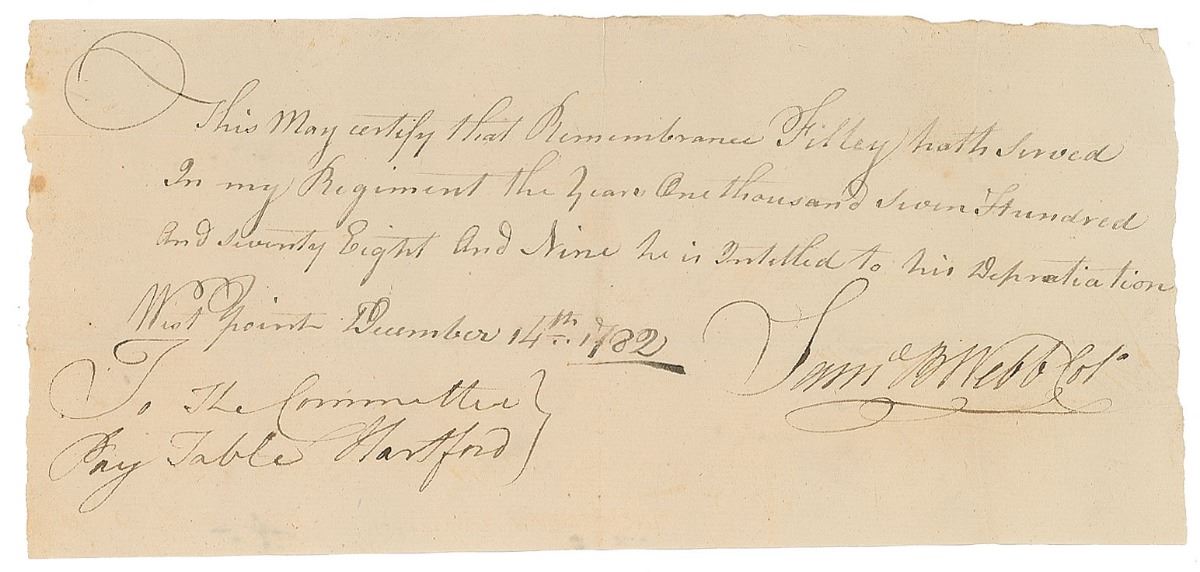 This May certify that Remembrance Filley hath served
In my Regiment the Years One thousand seven Hundred
And seventy Eight And Nine he is Intelled to his Depratiation
West Point December 14th. 1782
Samd. B Webb Colo
To the Committee
Pay Table Hartford